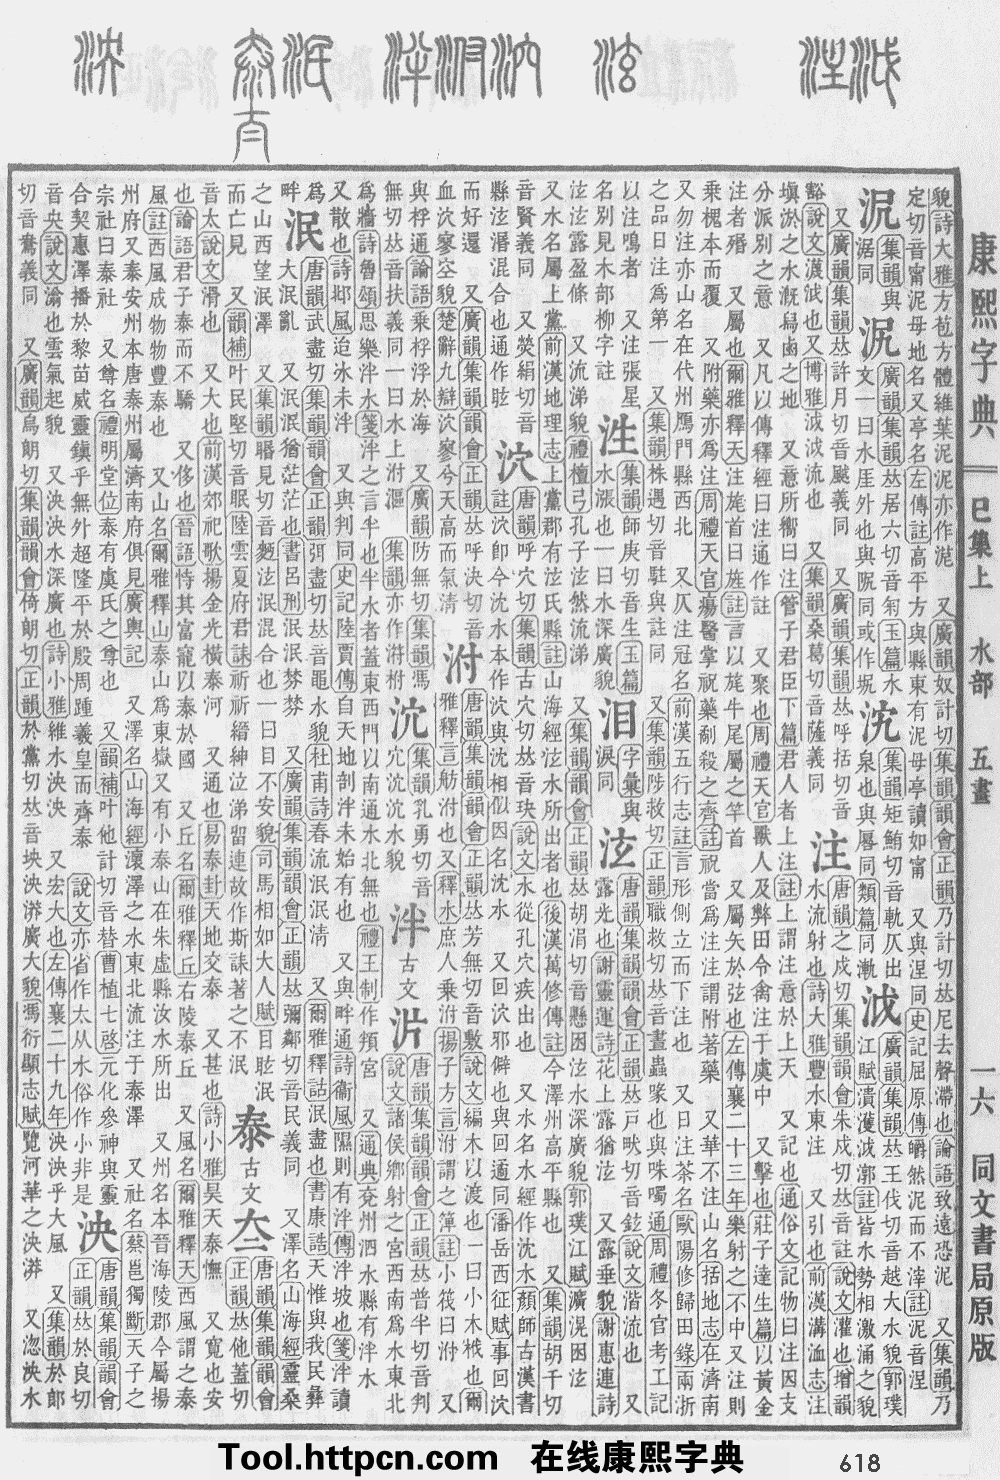 康熙字典 巳集上 水部 五畫 一六 同文書局原版
貌詩大雅方苞方體維葉泥泥亦作泥 又廣韻奴計切集韻韻會正韻乃計切𠀤尼去聲滯也論語致遠恐泥 又集韻乃
定切音甯泥母地名又亭名左傳註高平方與縣東有泥母亭讀如甯 又與涅同史記屈原傳皭然泥而不滓註泥音涅
廣韻集韻𠀤居六切音匊玉篇水
文一曰水厓外也
集韻矩鮪切音軌仄出
泉也與厬同
泧
廣韻集韻𠀤王伐切音越大水貌郭璞
江賦潰濩泧漷註皆水勢相激涌之貌
又廣韻集韻𠀤許月切音颰義同 又廣韻集韻𠀤呼括切音
豁說文瀎泧也又博雅泧泧流也 又集韻桑葛切音薩義同
注
唐韻之戍切集韻韻會朱戍切𠀤音註說文灌也增韻
水流射也詩大雅豐水東注 又引也前漢溝洫志注
塡淤之水漑舄鹵之地 又意所嚮曰注管子君臣下篇君人者上注註上謂注意於上天 又記也通俗文記物曰注因支
分派別之意 又凡以傳釋經曰注通作註 又聚也周禮天官獸人及弊田令禽注于虞中 又擊也莊子達生篇以黃金
注者殙 又屬也爾雅釋天注旄首曰旌註言以旄牛尾屬之竿首 又屬矢於弦也左傳襄二十三年樂射之不中又注則
乗槐本而覆 又附藥亦爲注周禮天官瘍醫掌祝藥劀殺之齊註祝當爲注注謂附著藥 又華不注山名括地志在濟南
又勿注亦山名在代州鴈門縣西北 又仄注冠名前漢五行志註言形側立而下注也 又日注茶名歐陽修歸田錄兩浙
之品日注爲第一 又集韻株遇切音駐與註同 又集韻陟救切正韻職救切𠀤音晝蟲喙也與咮噣通周禮冬官考工記
以注鳴者 又注張星
名別見木部柳字註
泩
集韻師庚切音生玉篇
水漲也一曰水深廣貌
泪
字彙與
淚同
泫
唐韻集韻韻會正韻𠀤戸畎切音鉉說文湝流也
露光也謝靈運詩花上露猶泫 又露垂貌謝惠連詩
泫泫露盈條 又流涕貌禮檀弓孔子泫然流涕 又集韻韻會正韻𠀤胡涓切音懸困泫水深廣貌郭璞江賦㶇滉困泫
又水名屬上黨前漢地理志上黨郡有泫氏縣註山海經泫水所出者也後漢萬修傳註今澤州高平縣也 又集韻胡千切
音賢義同 又熒絹切音
縣泫潛混合也通作眩
泬
唐韻呼穴切集韻古穴切𠀤音玦說文水從孔穴疾出也 又水名水經作沈水顏師古漢書
註泬卽今沈水本作泬與沈相似因名沈水 又回泬邪僻也與回遹同潘岳西征賦事回泬
而好還 又廣韻集韻韻會正韻𠀤呼決切音
血泬寥空貌楚辭九辯泬寥兮天高而氣淸
泭
唐韻集韻韻會正韻𠀤芳無切音敷說文編木以渡也一曰小木栰也爾
雅釋言舫泭也又釋水庶人乗泭揚子方言泭謂之䉬註小筏曰泭 又
與桴通論語乗桴浮於海 又廣韻防無切集韻馮
無切𠀤音扶義同一曰水上泭漚 集韻亦作㳇柎
集韻孔勇切音
泮
古文
唐韻集韻韻會正韻𠀤普半切音判
說文諸侯鄉射之宮西南爲水東北
爲牆詩魯頌思樂泮水箋泮之言半也半水者蓋東西門以南通水北無也禮王制作頖宮 又通典兗州泗水縣有泮水
又散也詩邶風迨冰未泮 又與判同史記陸賈傳自天地剖泮未始有也 又與畔通詩衞風隰則有泮傳泮坡也箋泮讀
爲
畔
泯
唐韻武盡切集韻韻會正韻弭盡切𠀤音黽水貌杜甫詩春流泯泯淸 又爾雅釋詁泯盡也書康誥天惟與我民彝
大泯亂 又泯泯猶茫茫也書呂刑泯泯棼棼 又廣韻集韻韻會正韻𠀤彌鄰切音民義同 又澤名山海經靈桑
之山西望泯澤 又集韻睧見切音麪泫泯混合也一曰目不安貌司馬相如大人賦目眩泯
而亡見 又韻補叶民堅切音眠陸雲夏府君誄祈祈縉紳泣涕留連故作斯誄著之不泯
泰
古文
夳
唐韻集韻韻會
正韻𠀤他蓋切
音太說文滑也 又大也前漢郊祀歌揚金光橫泰河 又通也易泰卦天地交泰 又甚也詩小雅昊天泰憮 又寬也安
也論語君子泰而不驕 又侈也晉語恃其富寵以泰於國 又丘名爾雅釋丘右陵泰丘 又風名爾雅釋天西風謂之泰
風註西風成物物豐泰也 又山名爾雅釋山泰山爲東嶽又有小泰山在朱虛縣汶水所出 又州名本晉海陵郡今屬揚
州府又泰安州本唐泰州屬濟南府俱見廣輿記 又澤名山海經澴澤之水東北流注于泰澤 又社名蔡邕獨斷天子之
宗社曰泰社 又尊名禮明堂位泰有虞氏之尊也 又韻補叶他計切音替曹植七啓元化參神與靈
合契惠澤播於黎苗威靈鎭乎無外超隆平於殷周踵羲皇而齊泰 說文亦省作太从大水俗作小非是
泱
唐韻集韻韻會
正韻𠀤於良切
音央說文滃也雲氣起貌 又泱泱水深廣也詩小雅維水泱泱 又宏大也左傳襄二十九年泱泱乎大風 又集韻於郎
切音鴦義同 又廣韻烏朗切集韻韻會倚朗切正韻於黨切𠀤音坱泱漭廣大貌馮衍顯志賦覽河華之泱漭 又㴔泱水
Tool.httpcn.com 在线康熙字典 618